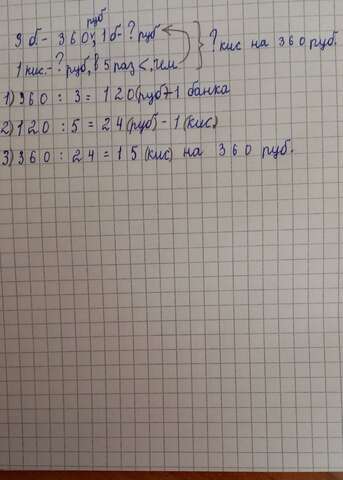 руб
3 б - 360; 1 б - ? руб
? кис на 360 руб.
1 кис. - ? руб, в 5 раз <, чем
1) 360 : 3 = 120 (руб) - 1 банка
2) 120 : 5 = 24 (руб) - 1 (кис)
3) 360 : 24 = 15 (кис) на 360 руб.